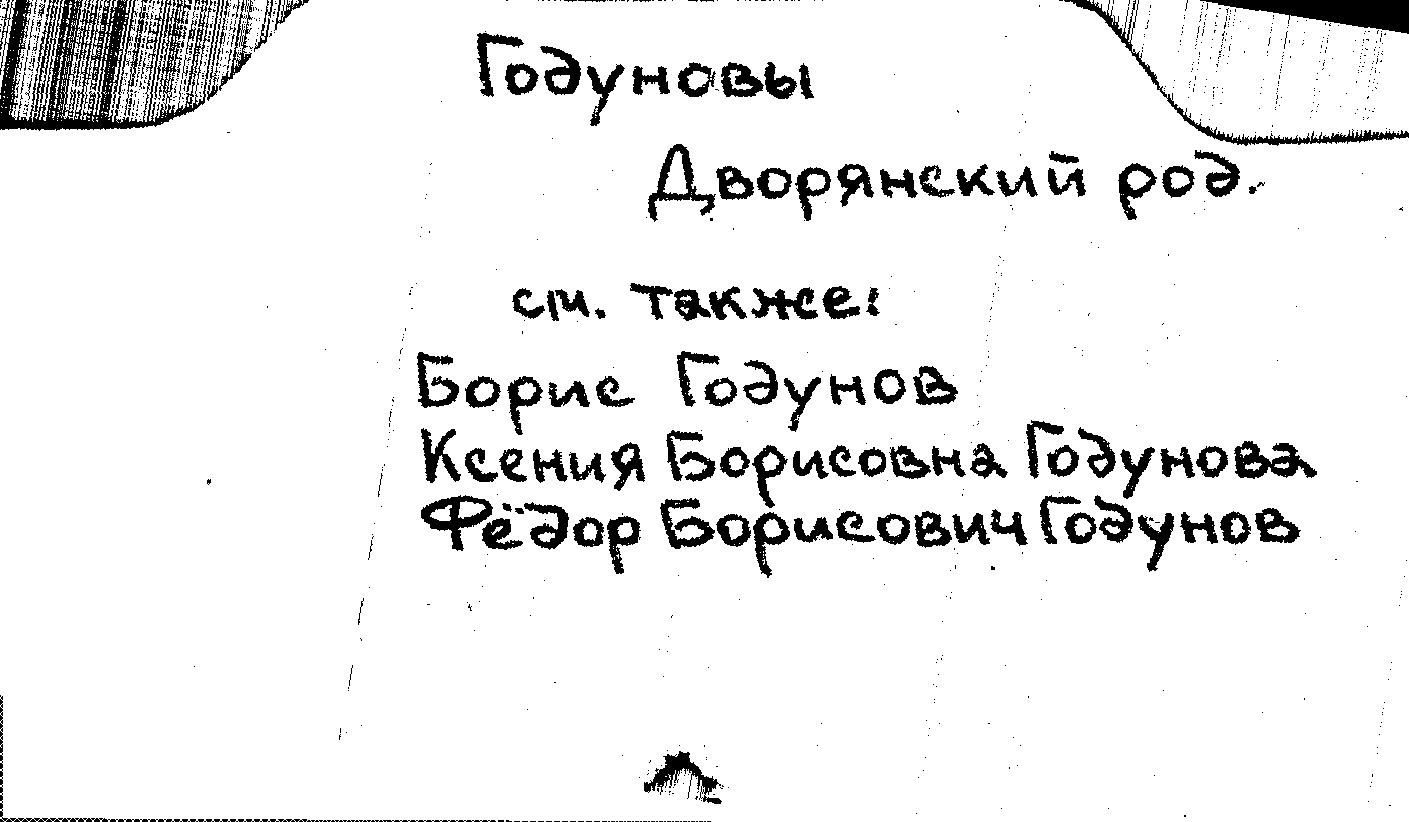 Годуновы
Дворянский род.
см. также:
Борис Годунов
Ксения Борисовна Годунова
Фёдор Борисович Годунов